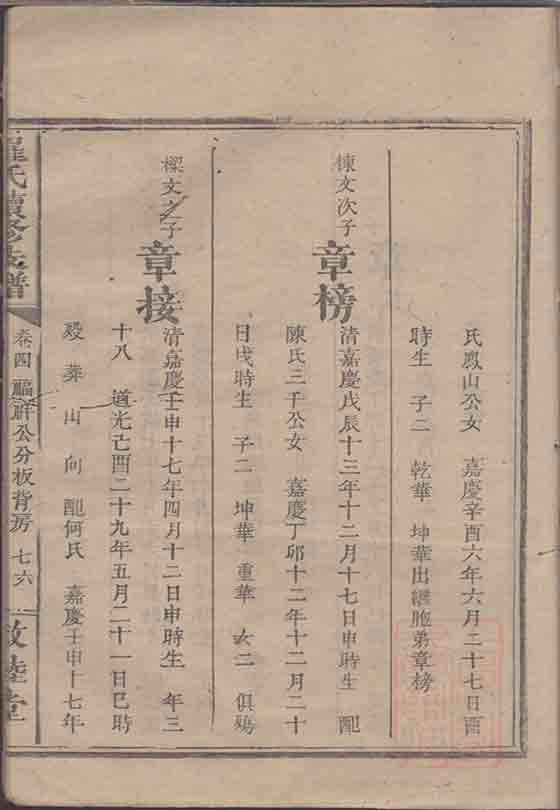 氏鳳山公女 嘉慶辛酉六年六月二十七日酉
時生 子二 乾華 坤華出繼胞弟章榜
棟文次子
章榜
清嘉慶戊辰十三年十二月十七日申時生 配
陳氏三千公女 嘉慶丁卯十二年十二月二十
日戌時生 子二 坤華 重華 女二 俱殤
樑文之子
章接
清嘉慶壬申十七年四月十二日申時生 年三
十八 道光己酉二十九年五月二十一日巳時
歿 葬 山 向 配何氏 嘉慶壬申十七年
氏續修族譜
卷四 福祥公分板背房 七六
敦睦堂